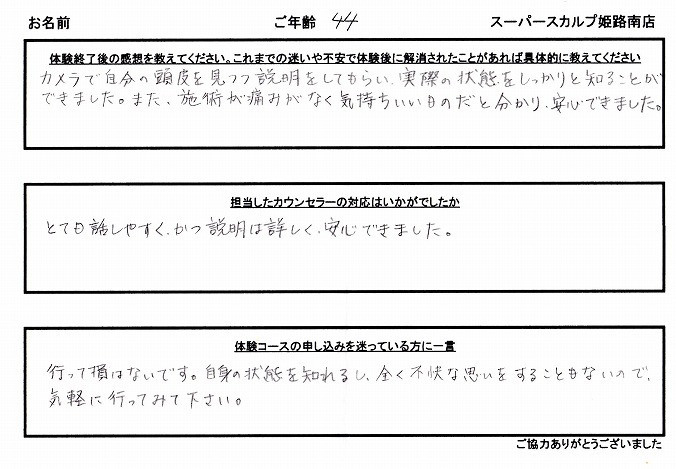 お名前 ご年齢 44 スーパースカルプ姫路南店
体験終了後の感想を教えてください。これまでの迷いや不安で体験後に解消されたことがあれば具体的に教えてください
カメラで自分の頭皮を見つつ説明をしてもらい、実際の状態をしっかりと知ることが
できました。また、施術が痛みがなく気持ちいいものだと分かり、安心できました。
担当したカウンセラーの対応はいかがでしたか
とても話しやすく、かつ説明は詳しく、安心できました。
体験コースの申し込みを迷っている方に一言
行って損はないです。自身の状態を知れるし、全く不快な思いをすることもないので、
気軽に行ってみて下さい。
ご協力ありがとうございました